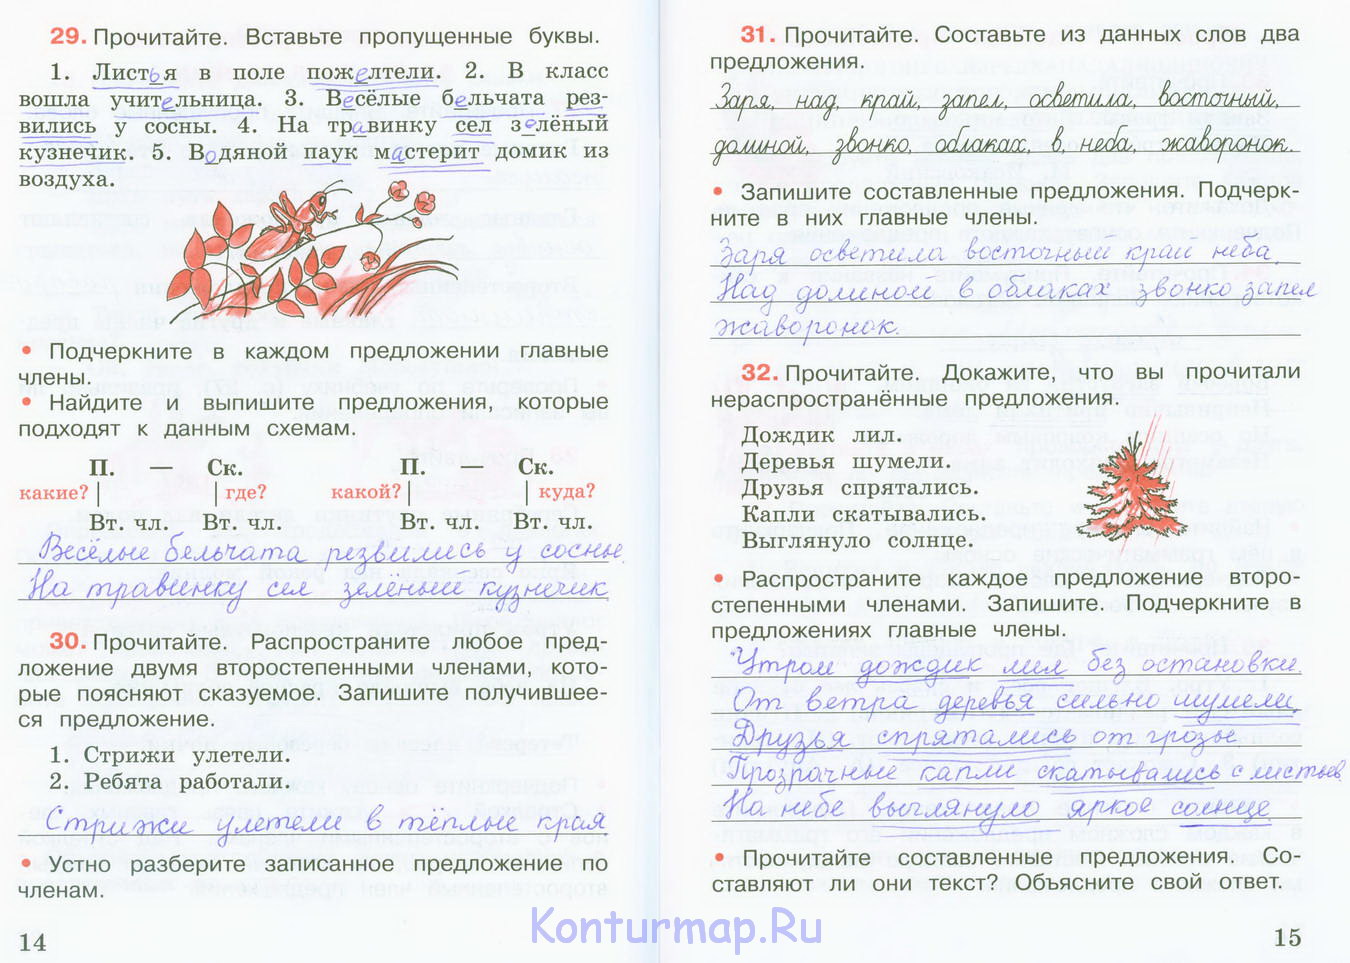 29. Прочитайте. Вставьте пропущенные буквы.
1. Листья в поле пожелтели. 2. В класс
вошла учительница. 3. Весёлые бельчата рез-
вились у сосны. 4. На травинку сел зелёный
кузнечик. 5. Водяной паук мастерит домик из
воздуха.
• Подчеркните в каждом предложении главные
члены.
• Найдите и выпишите предложения, которые
подходят к данным схемам.
П. — Ск. П. — Ск.
какие? где? какой? куда?
Вт. чл. Вт. чл. Вт. чл. Вт. чл.
Весёлые бельчата резвились у сосны
На травинку сел зелёный кузнечик
30. Прочитайте. Распространите любое пред-
ложение двумя второстепенными членами, кото-
рые поясняют сказуемое. Запишите получившее-
ся предложение.
1. Стрижи улетели.
2. Ребята работали.
Стрижи улетели в тёплые края
• Устно разберите записанное предложение по
членам.
14
31. Прочитайте. Составьте из данных слов два
предложения.
Заря, над, край, запел, осветила, восточный,
долиной, звонко, облаках, в, неба, жаворонок.
• Запишите составленные предложения. Подчерк-
ните в них главные члены.
Заря осветила восточный край неба.
Над долиной в облаках звонко запел
жаворонок.
32. Прочитайте. Докажите, что вы прочитали
нераспространённые предложения.
Дождик лил.
Деревья шумели.
Друзья спрятались.
Капли скатывались.
Выглянуло солнце.
• Распространите каждое предложение второ-
степенными членами. Запишите. Подчеркните в
предложениях главные члены.
Утром дождик лил без остановки.
От ветра деревья сильно шумели.
Друзья спрятались от грозы.
Прозрачные капли скатывались с листьев
На небе выглянуло яркое солнце
• Прочитайте составленные предложения. Со-
ставляют ли они текст? Объясните свой ответ.
15
Konturmap.Ru